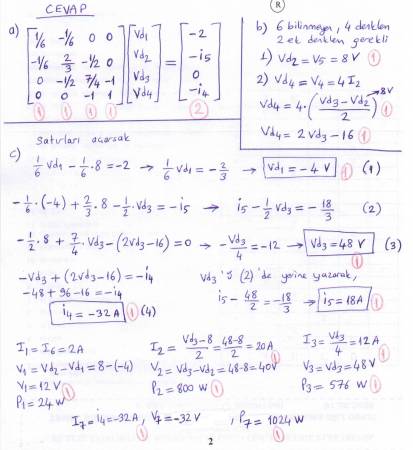 CEVAP
R
a)
1/6 -1/6 0 0 Vd1 -2
-1/6 2/3 -1/2 0 Vd2 = -i5
0 -1/2 7/4 -1 Vd3 0
0 0 -1 1 Vd4 -i4
1 1 1 1 2
b) 6 bilinmeyen, 4 denklem
2 ek denklem gerekli
1) Vd2 = V5 = 8V 1
2) Vd4 = V4 = 4I2
Vd4 = 4·(Vd3-Vd2/2) 8V
Vd4 = 2Vd3-16 1
c) Satırları açarsak
1/6 Vd1 - 1/6·8 = -2 → 1/6 Vd1 = -2/3 → Vd1 = -4 V 1 (1)
-1/6·(-4) + 2/3·8 - 1/2 Vd3 = -i5 → i5 - 1/2 Vd3 = -18/3 (2)
-1/2·8 + 7/4 Vd3 - (2Vd3-16) = 0 → -Vd3/4 = -12 → Vd3 = 48 V 1 (3)
-Vd3 + (2Vd3-16) = -i4
-48 + 96 - 16 = -i4
i4 = -32A 1 (4)
Vd3 'ü (2)'de yerine yazarak,
i5 - 48/2 = -18/3 → i5 = 18A 1
I1 = I6 = 2A
V1 = Vd2 - Vd1 = 8-(-4)
V1 = 12 V
P1 = 24 W 1
I2 = Vd3-8/2 = 48-8/2 = 20A 1
V2 = Vd3 - Vd2 = 48-8 = 40V 1
P2 = 800 W 1
I3 = Vd3/4 = 12A 1
V3 = Vd3 = 48V 1
P3 = 576 W 1
I7 = i4 = -32A, V7 = -32 V, P7 = 1024 W
1 1 1
2